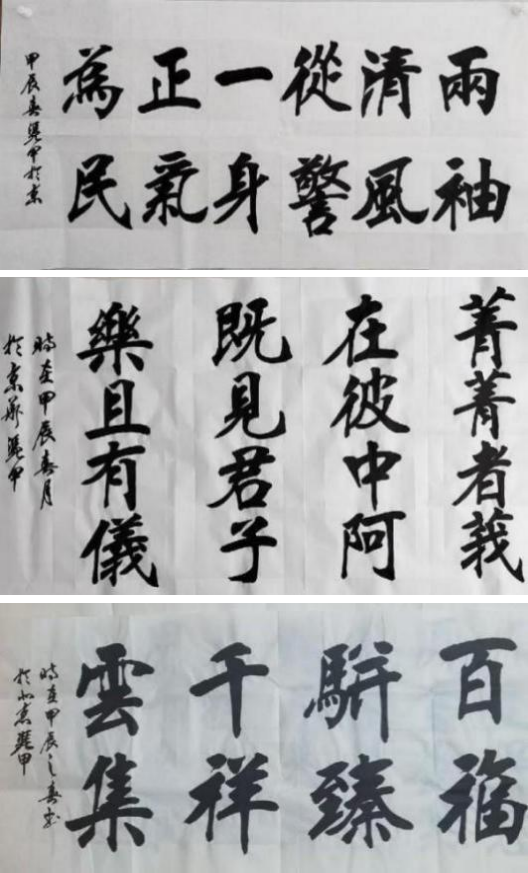 兩袖
清風
從警
一身
正氣
為民
甲辰春 甲於京
菁菁者莪
在彼中阿
既見君子
樂且有儀
時在甲辰春月
於京 甲
百福
駢臻
千祥
雲集
時在甲辰之春書
於北京 甲